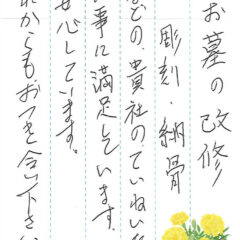 お墓の改修
彫刻・納骨
などの、貴社のていねいな
事に満足しています。
安心しています。
れからもおつき合い下さい